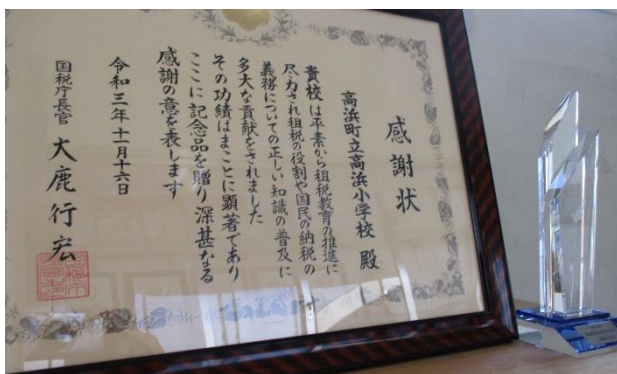 感謝状
高浜町立高浜小学校 殿
貴校は平素から租税教育の推進に
尽力され租税の役割や国民の納税の
義務についての正しい知識の普及に
多大な貢献をされました
その功績はまことに顕著であり
ここに記念品を贈り深甚なる
感謝の意を表します
令和三年十一月十六日
国税庁長官 大鹿行宏